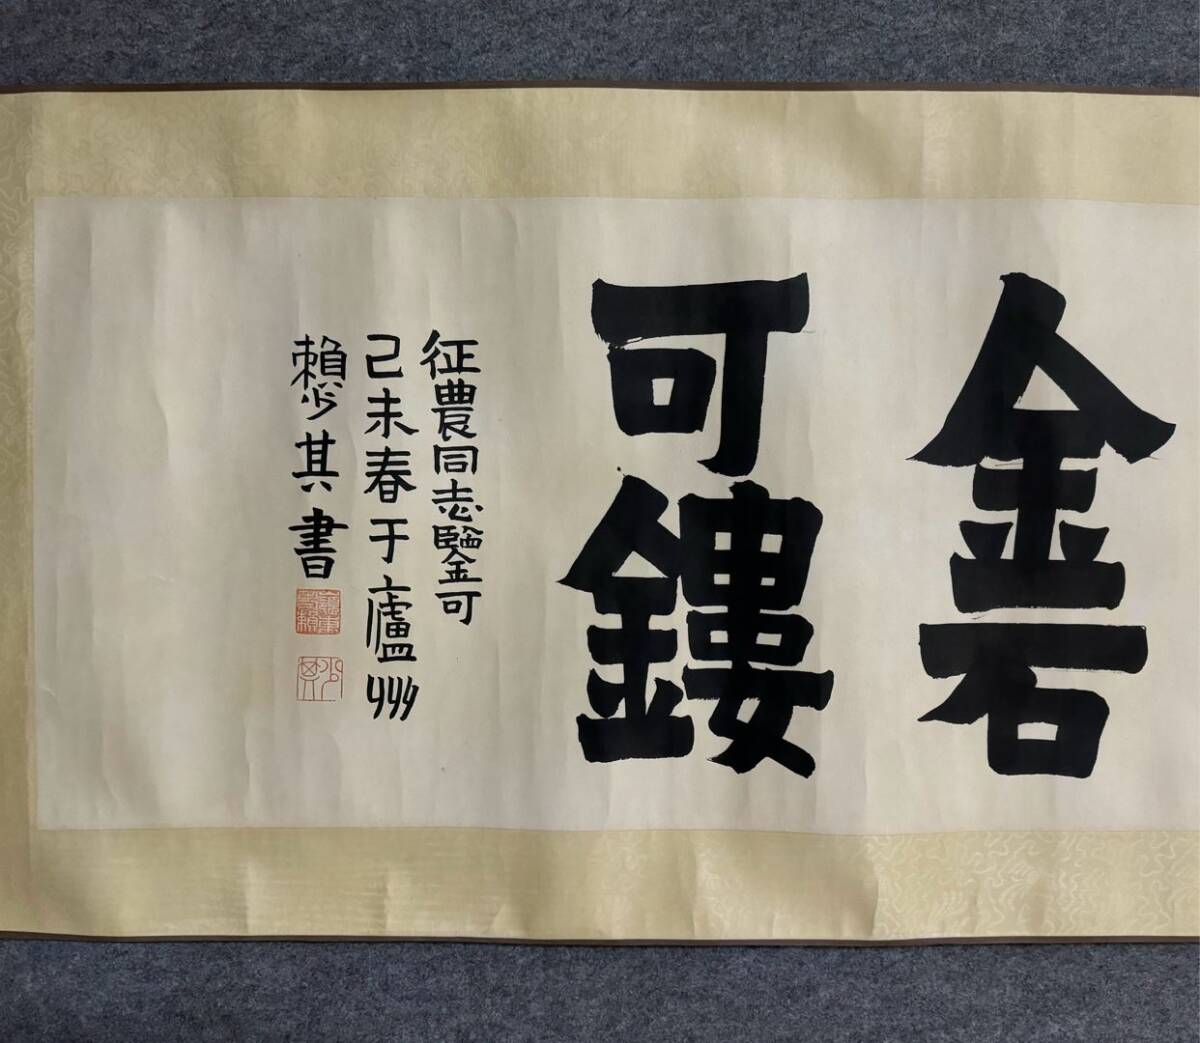 金石
可鏤
征農同志鑒可
己未春于廬州
賴少其書